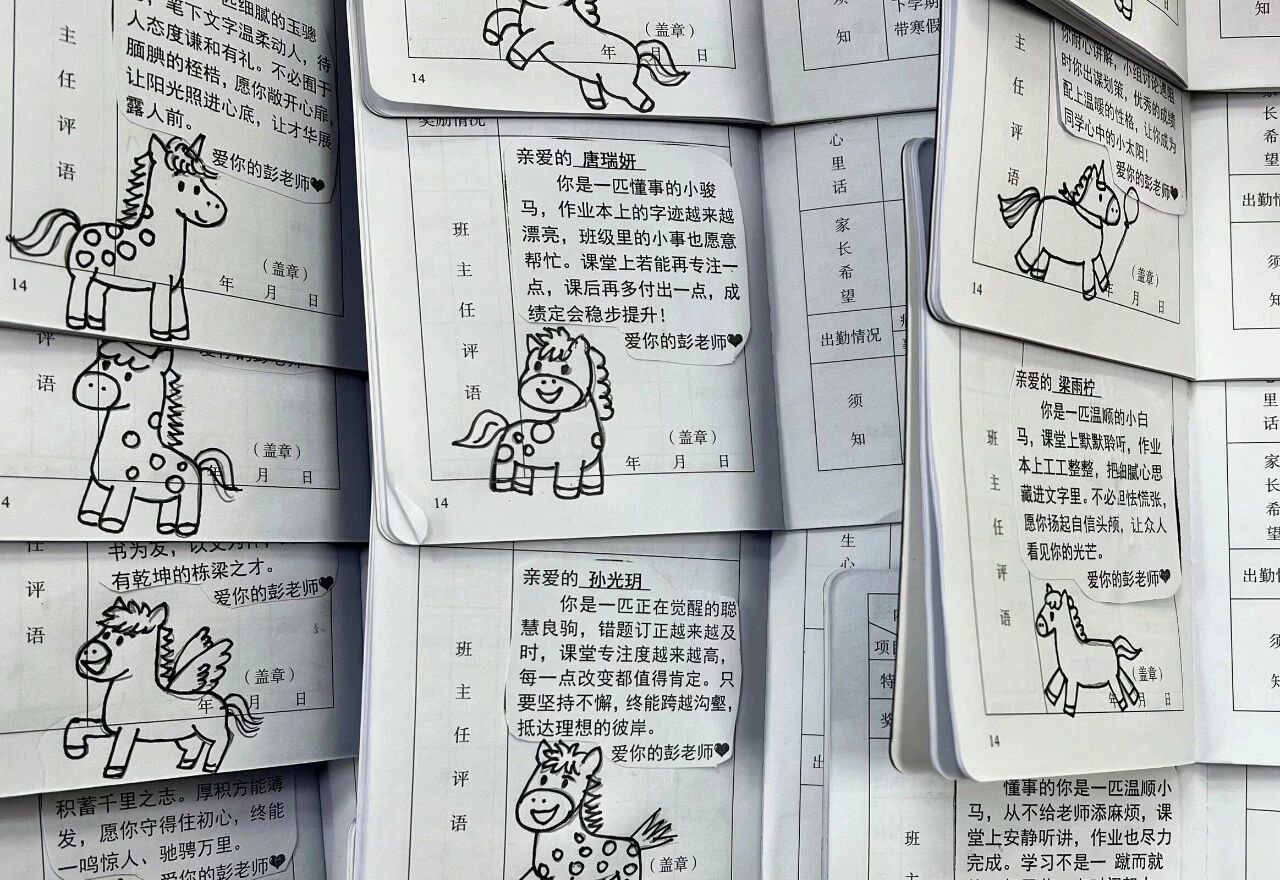 主
任
评
语
匹细腻的玉骢
，笔下文字温柔动人，待
人态度谦和有礼。不必囿于
腼腆的桎梏，愿你敞开心扉，
让阳光照进心底，让才华展
露人前。
爱你的彭老师
（盖章）
年 月 日
14
评
语
爱你的彭老师
（盖章）
年 月 日
4
任
评
语
有乾坤的栋梁之才。
爱你的彭老师
（盖章）
年 月 日
积蓄千里之志。厚积方能薄
发，愿你守得住初心，终能
一鸣惊人、驰骋万里。
爱你的彭老师
（盖章）
年 月 日
14
须
知
下学期
带寒假
奖励情况
班
主
任
评
语
亲爱的 唐瑞妍
你是一匹懂事的小骏
马，作业本上的字迹越来越
漂亮，班级里的小事也愿意
帮忙。课堂上若能再专注一
点，课后再多付出一点，成
绩定会稳步提升！
爱你的彭老师
（盖章）
年 月 日
14
心
里
话
家
长
希
望
出勤情况
须
知
班
主
任
评
语
亲爱的 孙光玥
你是一匹正在觉醒的聪
慧良驹，错题订正越来越及
时，课堂专注度越来越高，
每一点改变都值得肯定。只
要坚持不懈，终能跨越沟壑，
抵达理想的彼岸。
爱你的彭老师
（盖章）
生
心
出
项目
特
奖
主
任
评
语
你耐心讲解，小组讨论遇阻
时你出谋划策，优秀的成绩
配上温暖的性格，让你成为
同学心中的小太阳！
爱你的彭老师
（盖章）
年 月 日
14
知
家
长
希
望
出勤情
须
知
班
主
任
评
语
亲爱的 梁雨柠
你是一匹温顺的小白
马，课堂上默默聆听，作业
本上工工整整，把细腻心思
藏进文字里。不必胆怯慌张，
愿你扬起自信头颅，让众人
看见你的光芒。
爱你的彭老师
（盖章）
年 月 日
14
里
话
家
长
希
望
出勤情
须
知
班
主
懂事的你是一匹温顺小
马，从不给老师添麻烦，课
堂上安静听讲，作业也尽力
完成。学习不是一蹴而就